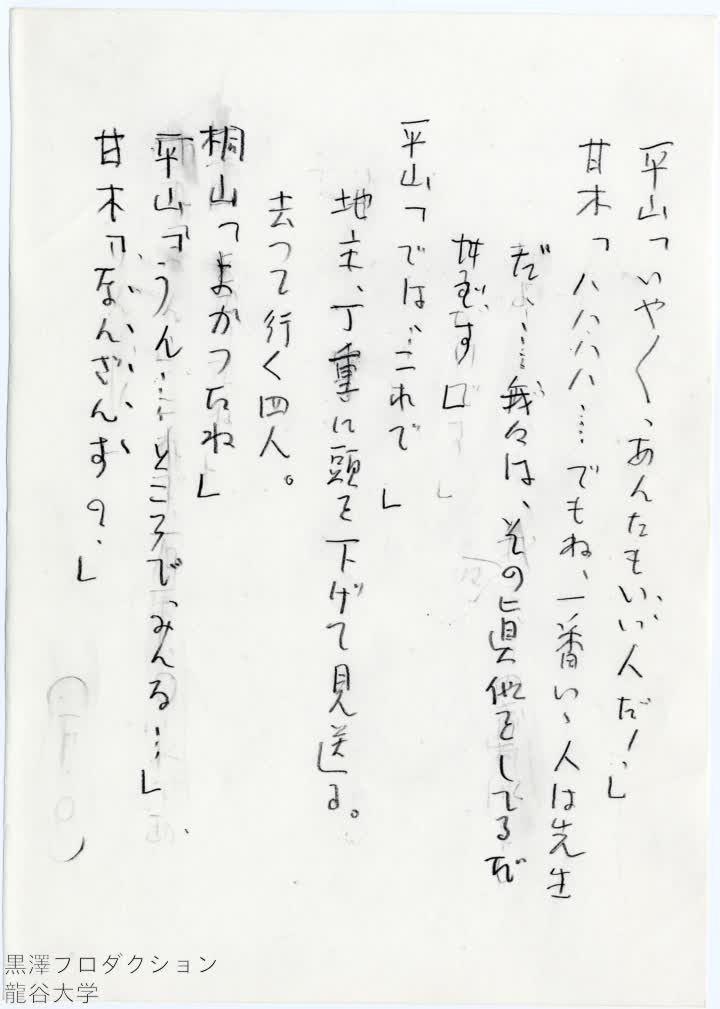 平山「いや〱、あんたもいゝ人だ！」
甘木「ハハハハ……でもね、一番いゝ人は先生
だ、……我々は、その眞似をしてるだ
けです」
平山「では、これで」
地主、丁重に頭を下げて見送る。
去つて行く四人。
桐山「よかつたね」
平山「うん……ところで、みんな…」
甘木「なんざんす？」
黒澤プロダクション
龍谷大学